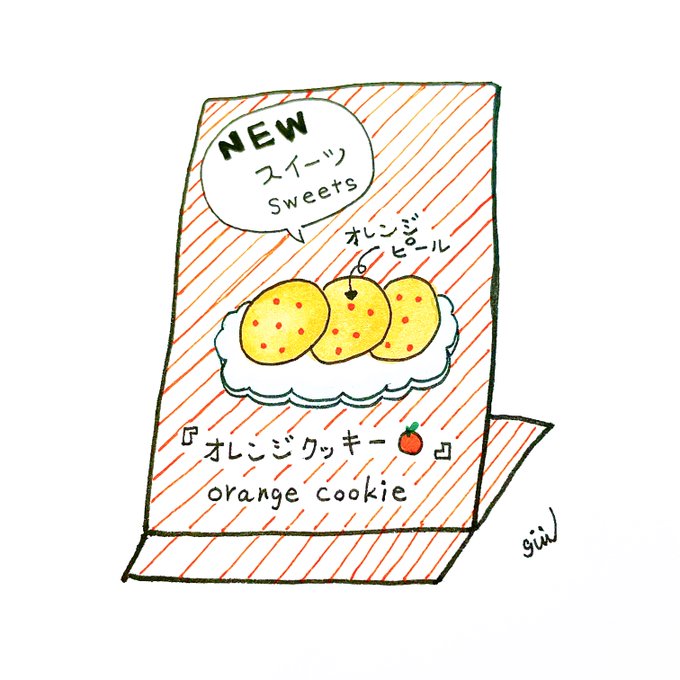 NEW
スイーツ
sweets
オレンジ
ピール
『オレンジクッキー 』
orange cookie